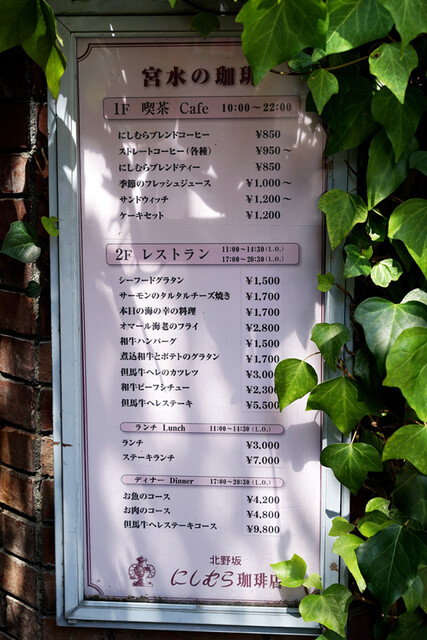 宮水の珈琲
1F 喫茶 Cafe 10:00～22:00
にしむらブレンドコーヒー ¥850
ストレートコーヒー(各種) ¥950～
にしむらブレンドティー ¥850
季節のフレッシュジュース ¥1,000～
サンドウィッチ ¥1,200～
ケーキセット ¥1,200
2F レストラン 11:00～14:30(L.O.)
17:00～20:30(L.O.)
シーフードグラタン ¥1,500
サーモンのタルタルチーズ焼き ¥1,700
本日の海の幸の料理 ¥1,700
オマール海老のフライ ¥2,800
和牛ハンバーグ ¥1,500
煮込和牛とポテトのグラタン ¥1,700
但馬牛ヘレのカツレツ ¥3,00
和牛ビーフシチュー ¥2,30
但馬牛ヘレステーキ ¥5,500
ランチ Lunch 11:00～14:30(L.O.)
ランチ ¥3,000
ステーキランチ ¥7,000
ディナー Dinner 17:00～20:30(L.O.)
お魚のコース ¥4,200
お肉のコース ¥4,800
但馬牛ヘレステーキコース ¥9,800
北野坂
にしむら珈琲店